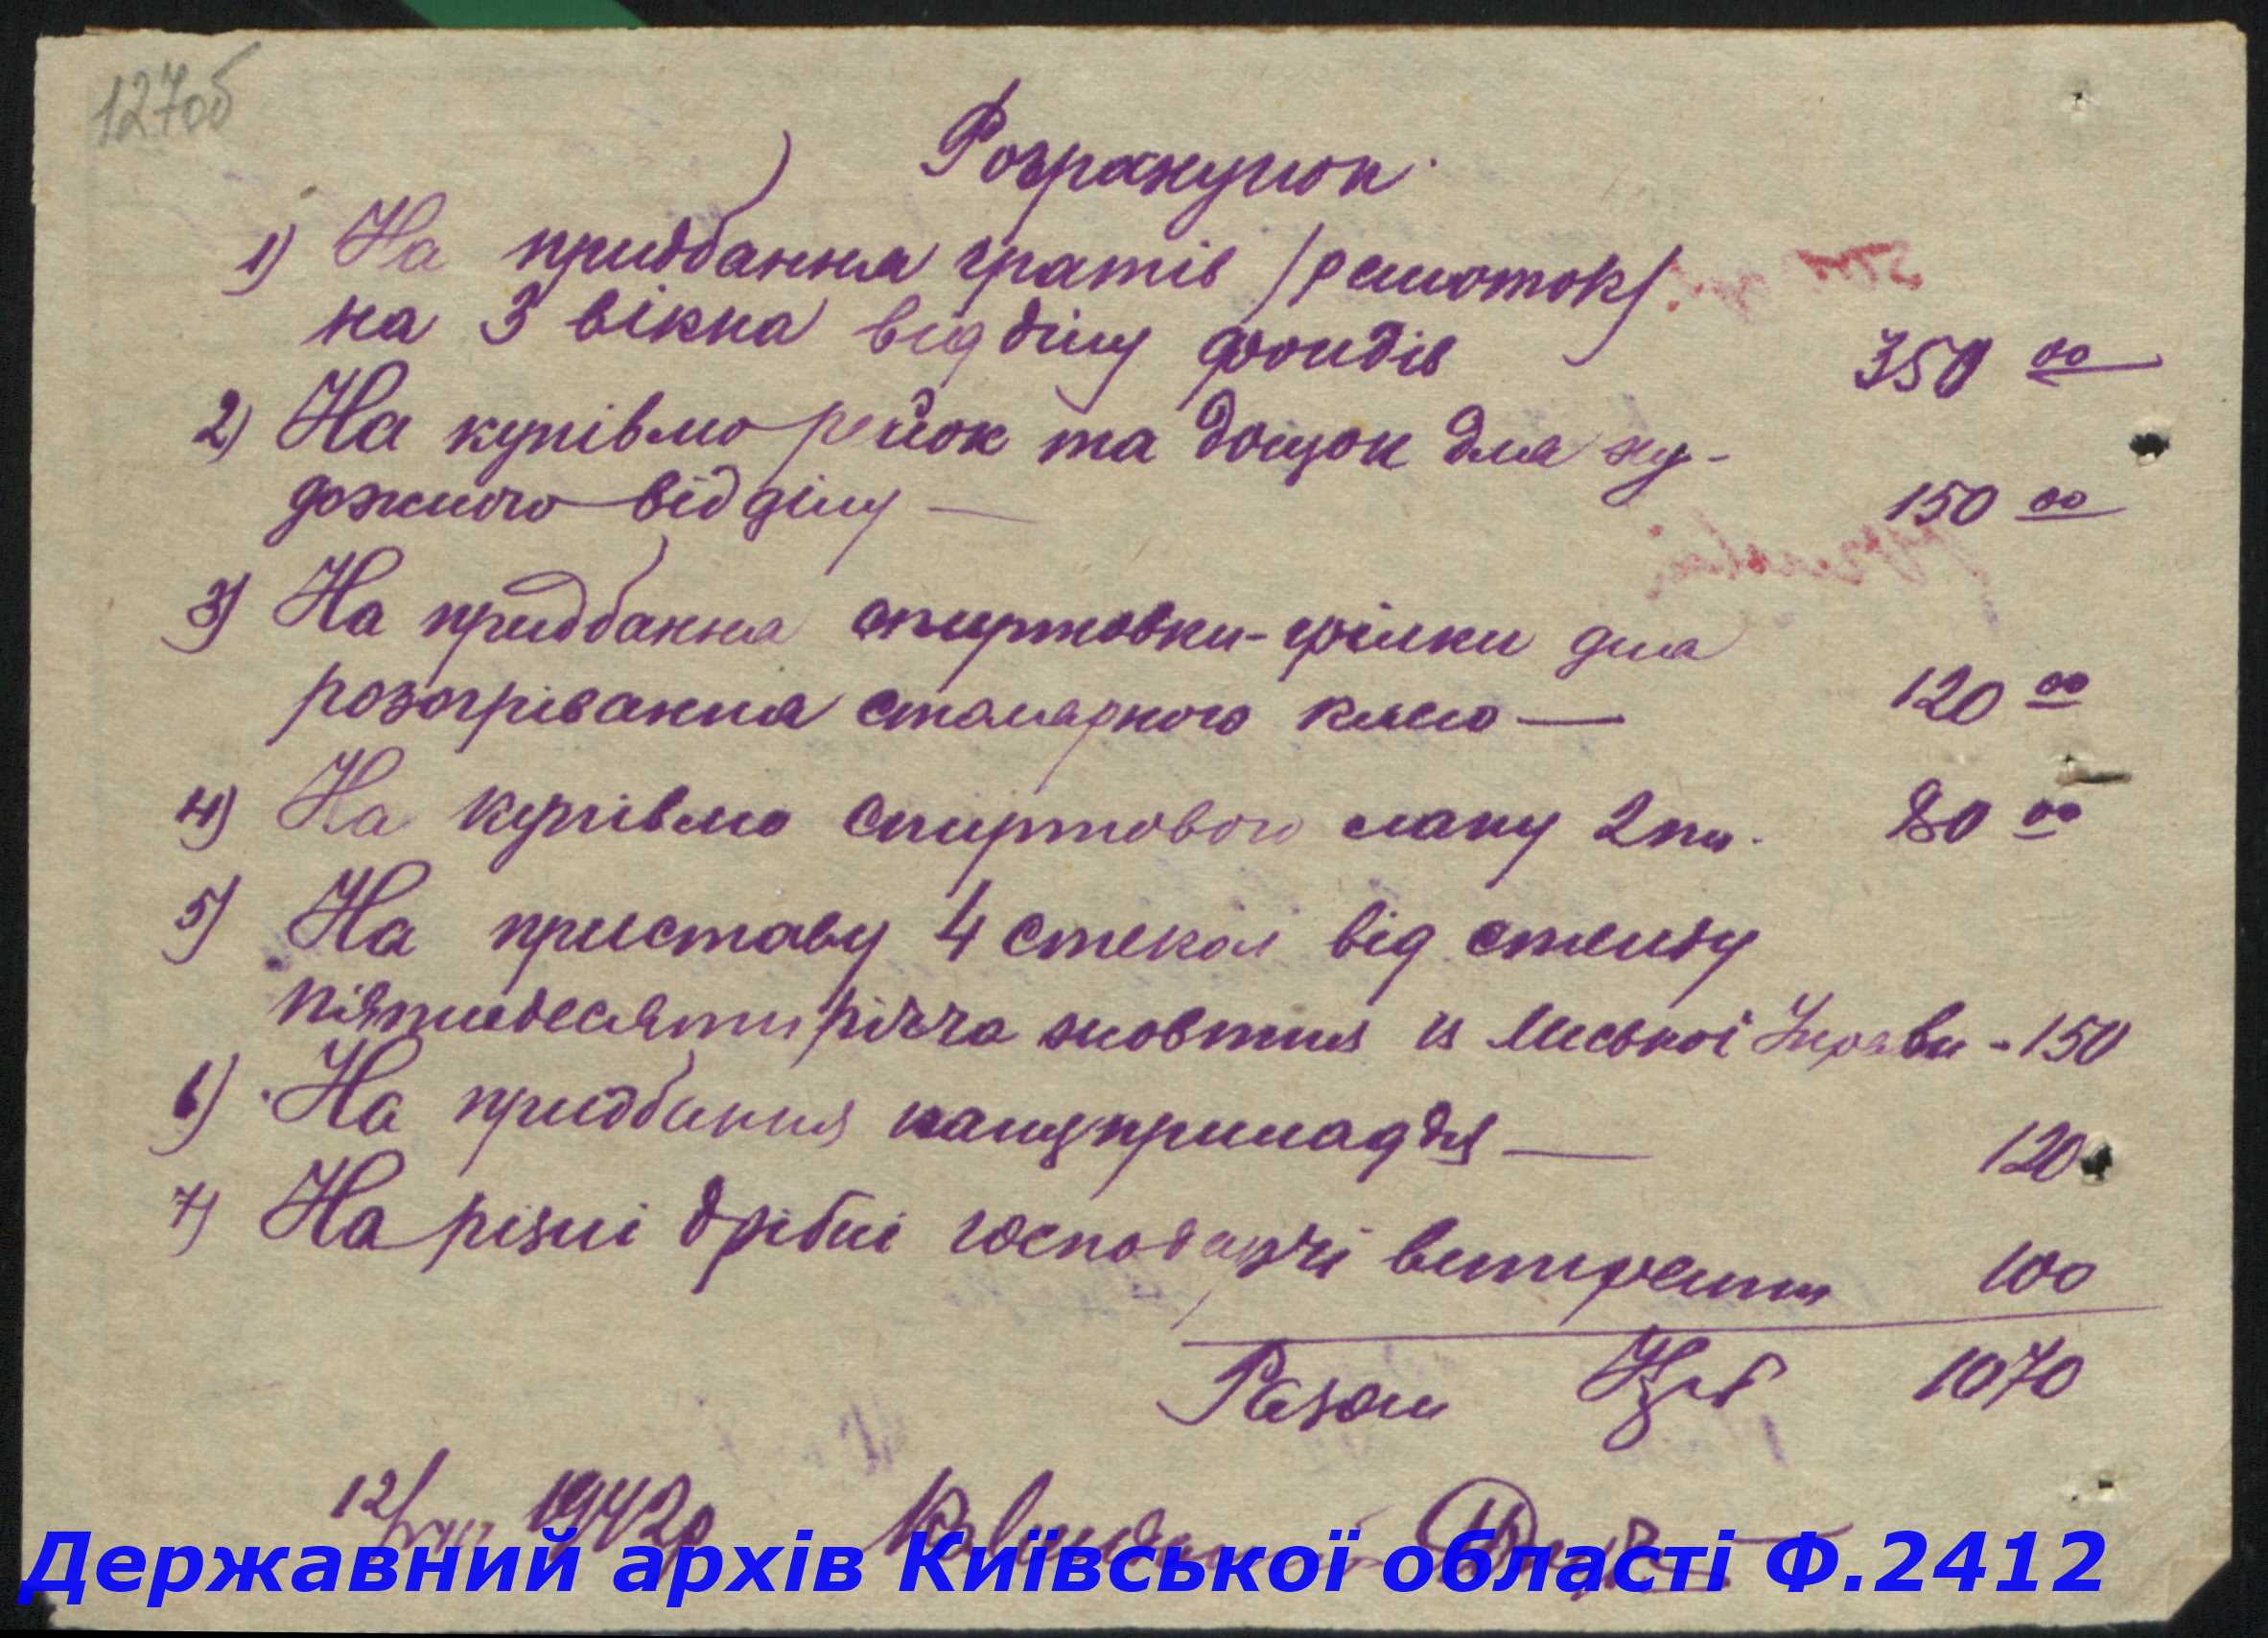 127об
Розрахунок
1) На придбання гратів /решоток/
на 3 вікна відділу фондів 350 00
2) На купівлю рейок та дощок для ху-
дожнього відділу — 150 00
3) На придбання спиртовки-грілки для
розогрівання столярного клею — 120 00
4) На купівлю спиртового лаку 2 пл. 80 00
5) На приставу 4 стекол від стенду
пятидесятиріччя жовтня із Міської Управи - 150
6) На придбання канцприладдя — 120
7) На різні дрібні господарчі витрати 100
Разом 1070
12/VIII 1942р
Державний архів Київської області Ф.2412